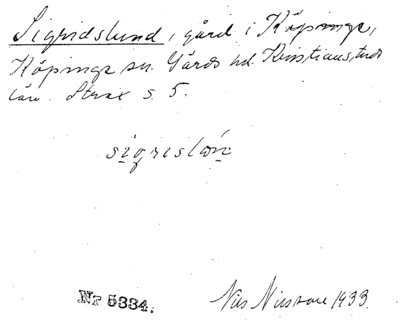 Sigridslund, gård i Köpinge,
Köpinge sn. Gärds hd. Kristianstads
län. Strax s. 5.
sigrislón
Nr 5334.
Nils Nilsson 1933.